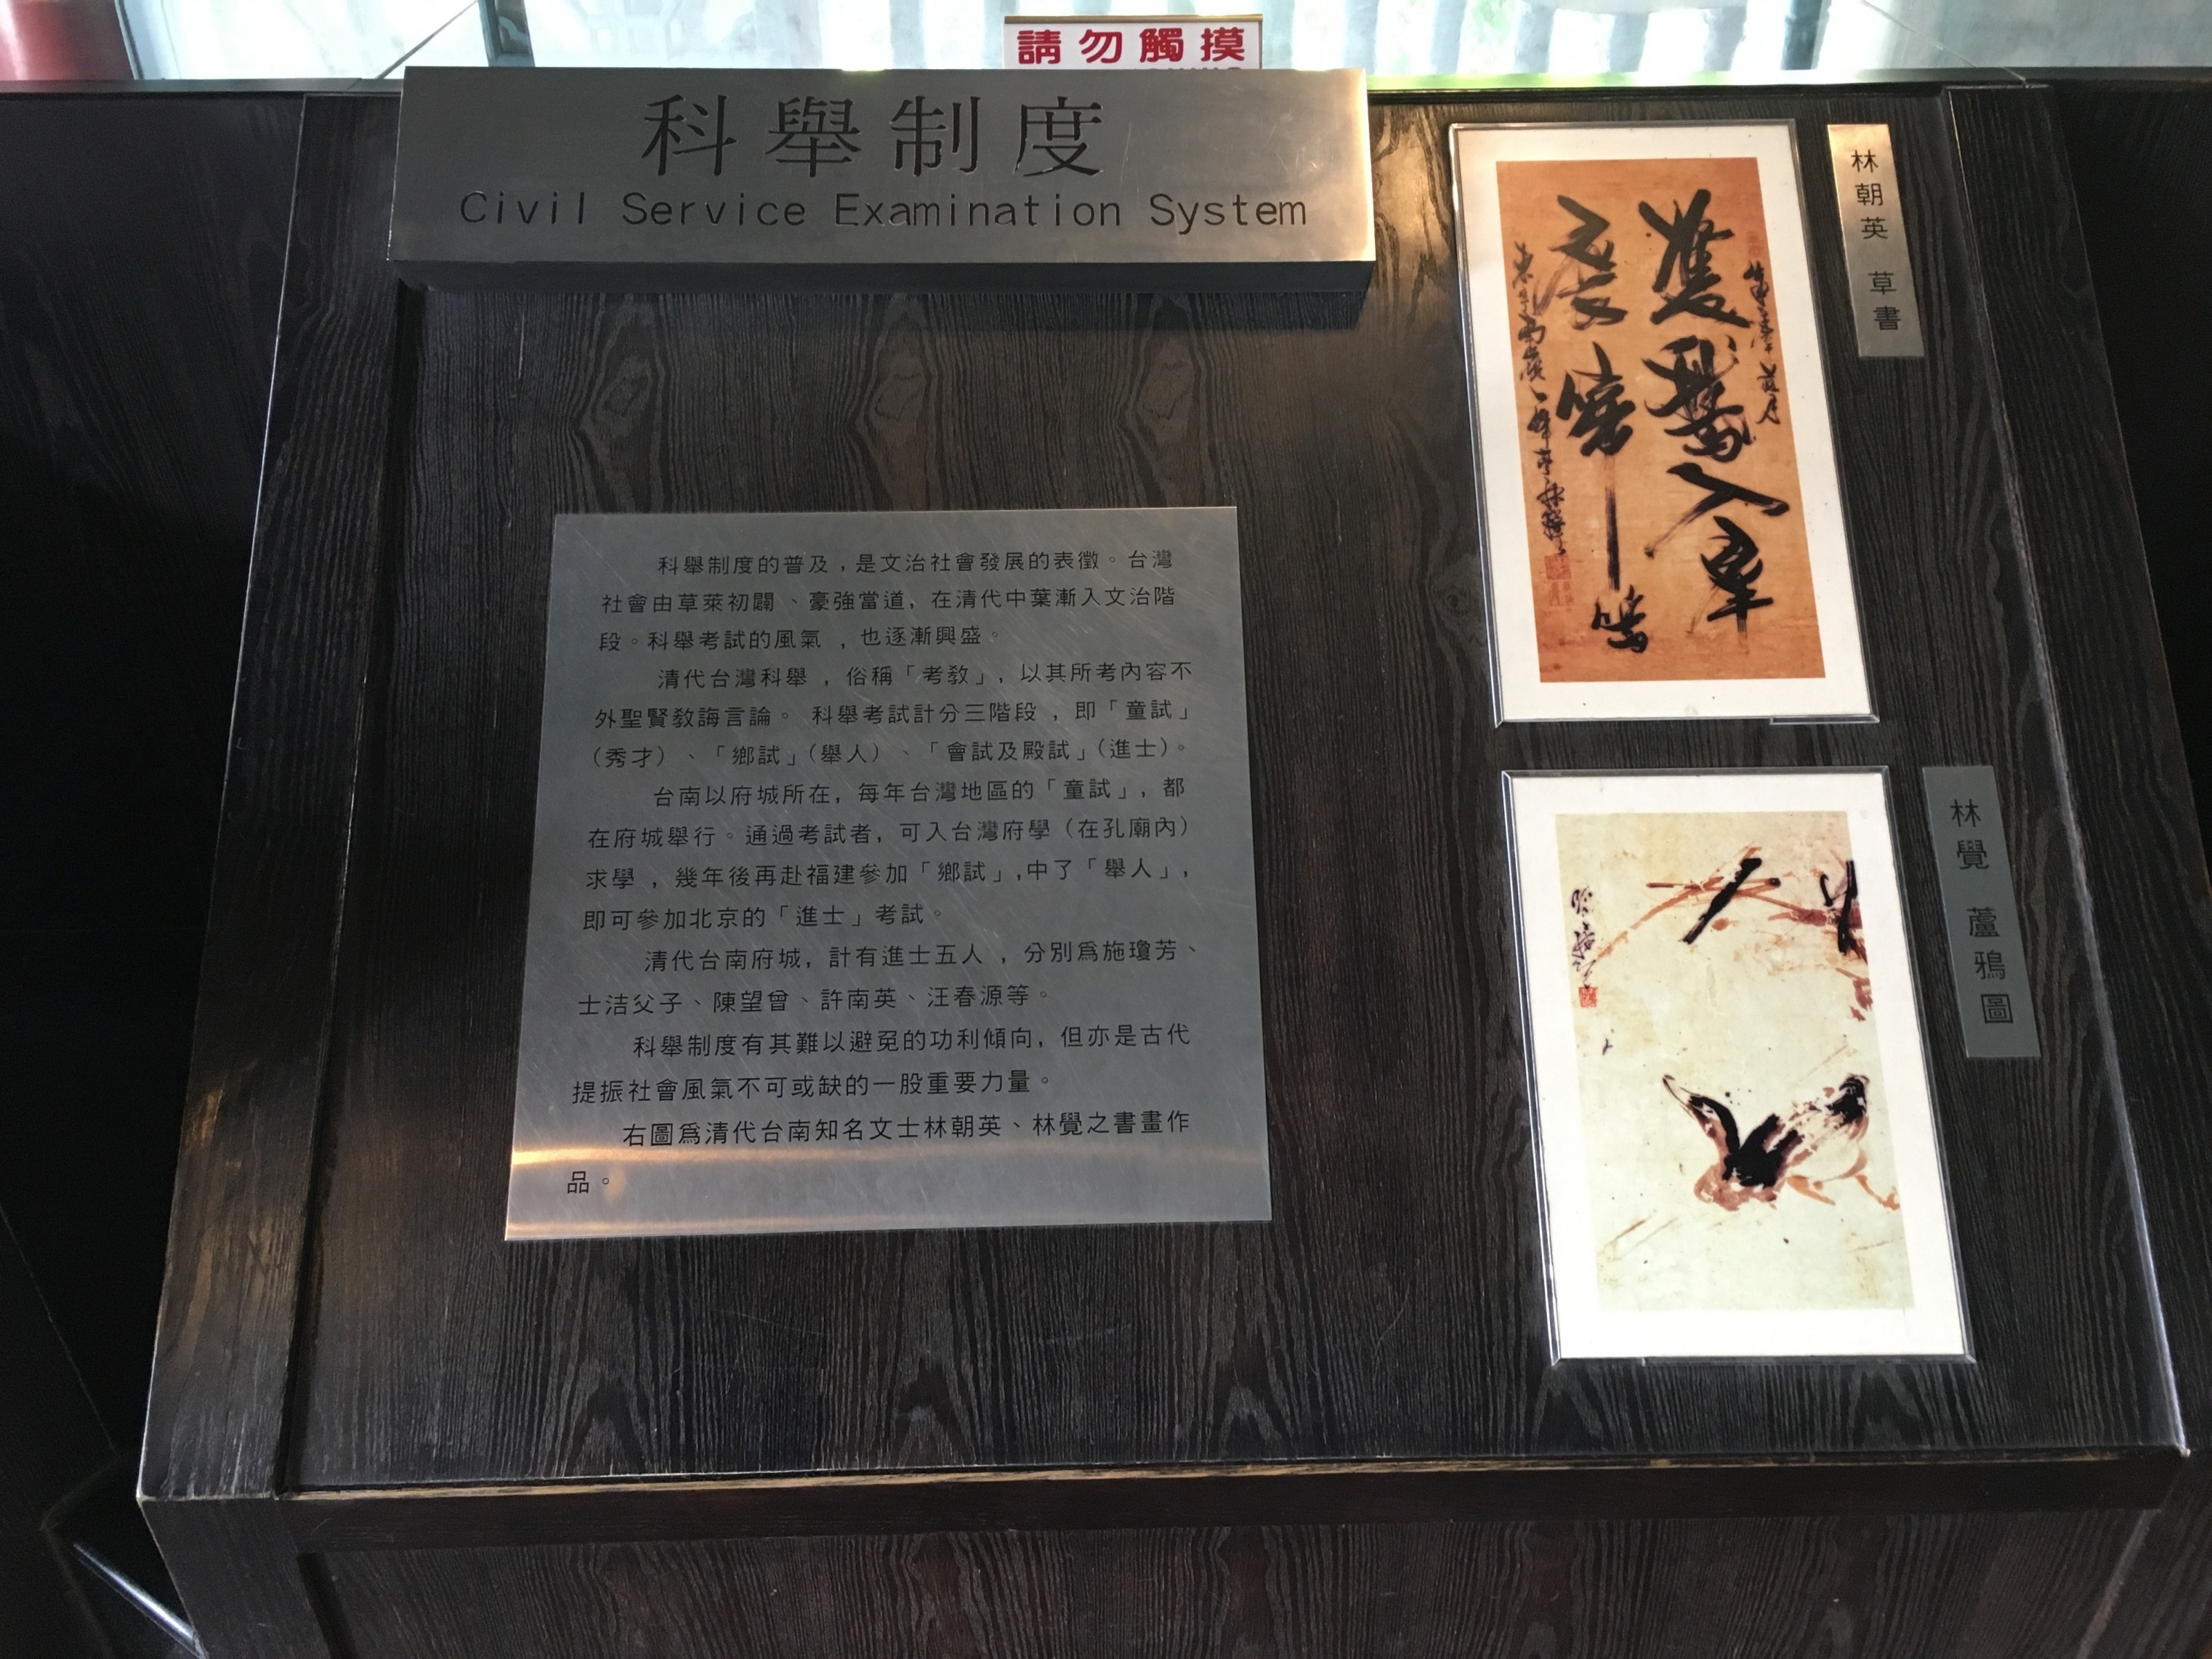 請勿觸摸
科舉制度
Civil Service Examination System
科舉制度的普及,是文治社會發展的表徵。台灣
社會由草萊初闢、豪強當道,在清代中葉漸入文治階
段。科舉考試的風氣,也逐漸興盛。
清代台灣科舉,俗稱「考教」,以其所考內容不
外聖賢教誨言論。科舉考試計分三階段,即「童試」
(秀才)、「鄉試」(舉人)、「會試及殿試」(進士)。
台南以府城所在,每年台灣地區的「童試」,都
在府城舉行。通過考試者,可入台灣府學(在孔廟內)
求學,幾年後再赴福建參加「鄉試」,中了「舉人」,
即可參加北京的「進士」考試。
清代台南府城,計有進士五人,分別為施瓊芳、
士洁父子、陳望曾、許南英、汪春源等。
科舉制度有其難以避冤的功利傾向,但亦是古代
提振社會風氣不可或缺的一股重要力量。
右圖為清代台南知名文士林朝英、林覺之書畫作
品。
林朝英 草書
林覺 蘆鴉圖